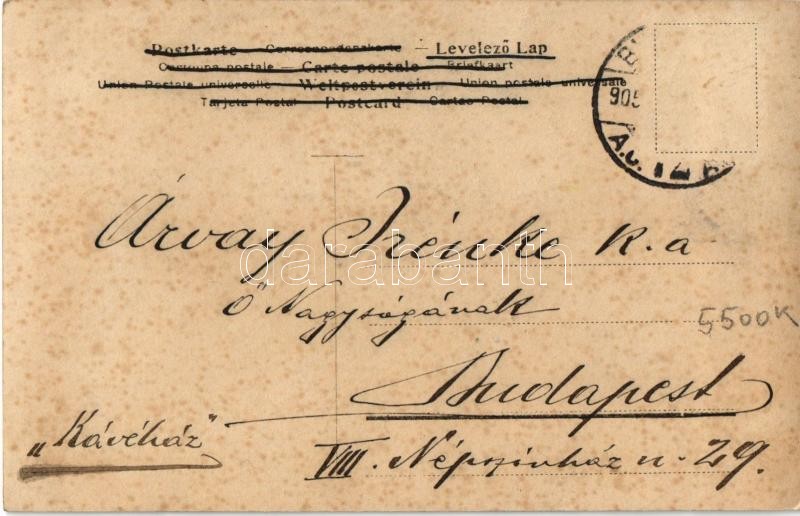 Postkarte – Correspondenzkarte – Levelező Lap
Carte postale – Briefkaart
Union Postale universelle – Weltpostverein – Union postale universale
Tarjeta Postal – Postcard – Cartao Postal
905
A.
12
Árvay Irénke k.a
darabanth
Ő Nagyságának
5500K
Budapest
"Kávéház"
VIII. Népszinház u. 29.